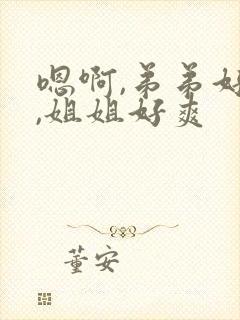 嗯啊,弟弟好
,姐姐好爽
董安